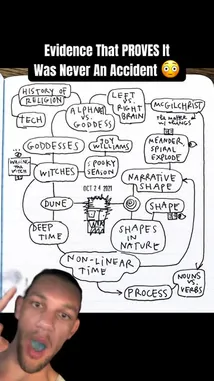 Evidence That PROVES It
Was Never An Accident 😳
HISTORY OF
RELIGION
LEFT
VS.
RIGHT
BRAIN
McGILCHRIST
TECH
ALPHABET
VS.
GODDESS
THE MATTER
WITH THINGS
GODDESSES
JOY
WILLIAMS
MEANDER,
SPIRAL
EXPLODE
WAKING
THE
WITCH
WITCHES
SPOOKY
SEASON
NARRATIVE
SHAPE
OCT 24 2021
DUNE
SHAPE
DEEP
TIME
SHAPES
IN
NATURE
NON-LINEAR
TIME
PROCESS
NOUNS
VS.
VERBS